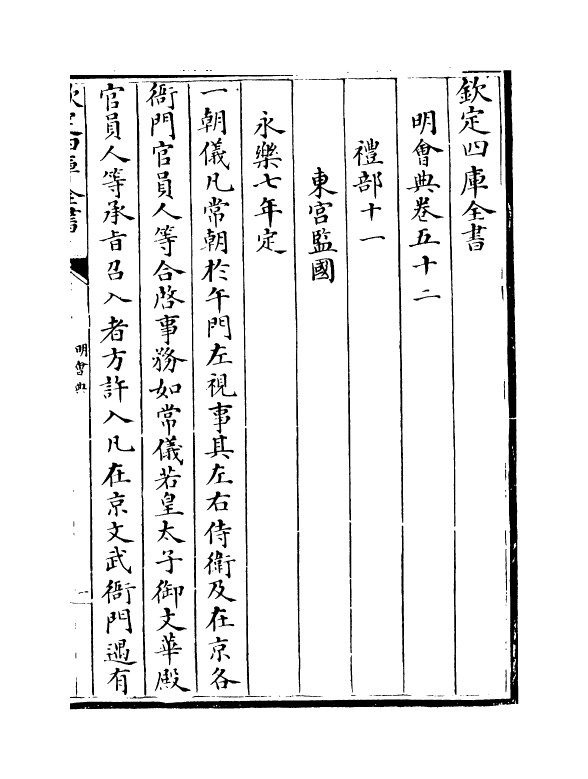 欽定四庫全書
明會典卷五十二
禮部十一
東宫監國
永樂七年定
一朝儀凡常朝於午門左視事其左右侍衛及在京各
衙門官員人等合啓事務如常儀若皇太子御文華殿
官員人等承旨召入者方許入凡在京文武衙門遇有
欽定四庫全書
明會典
一